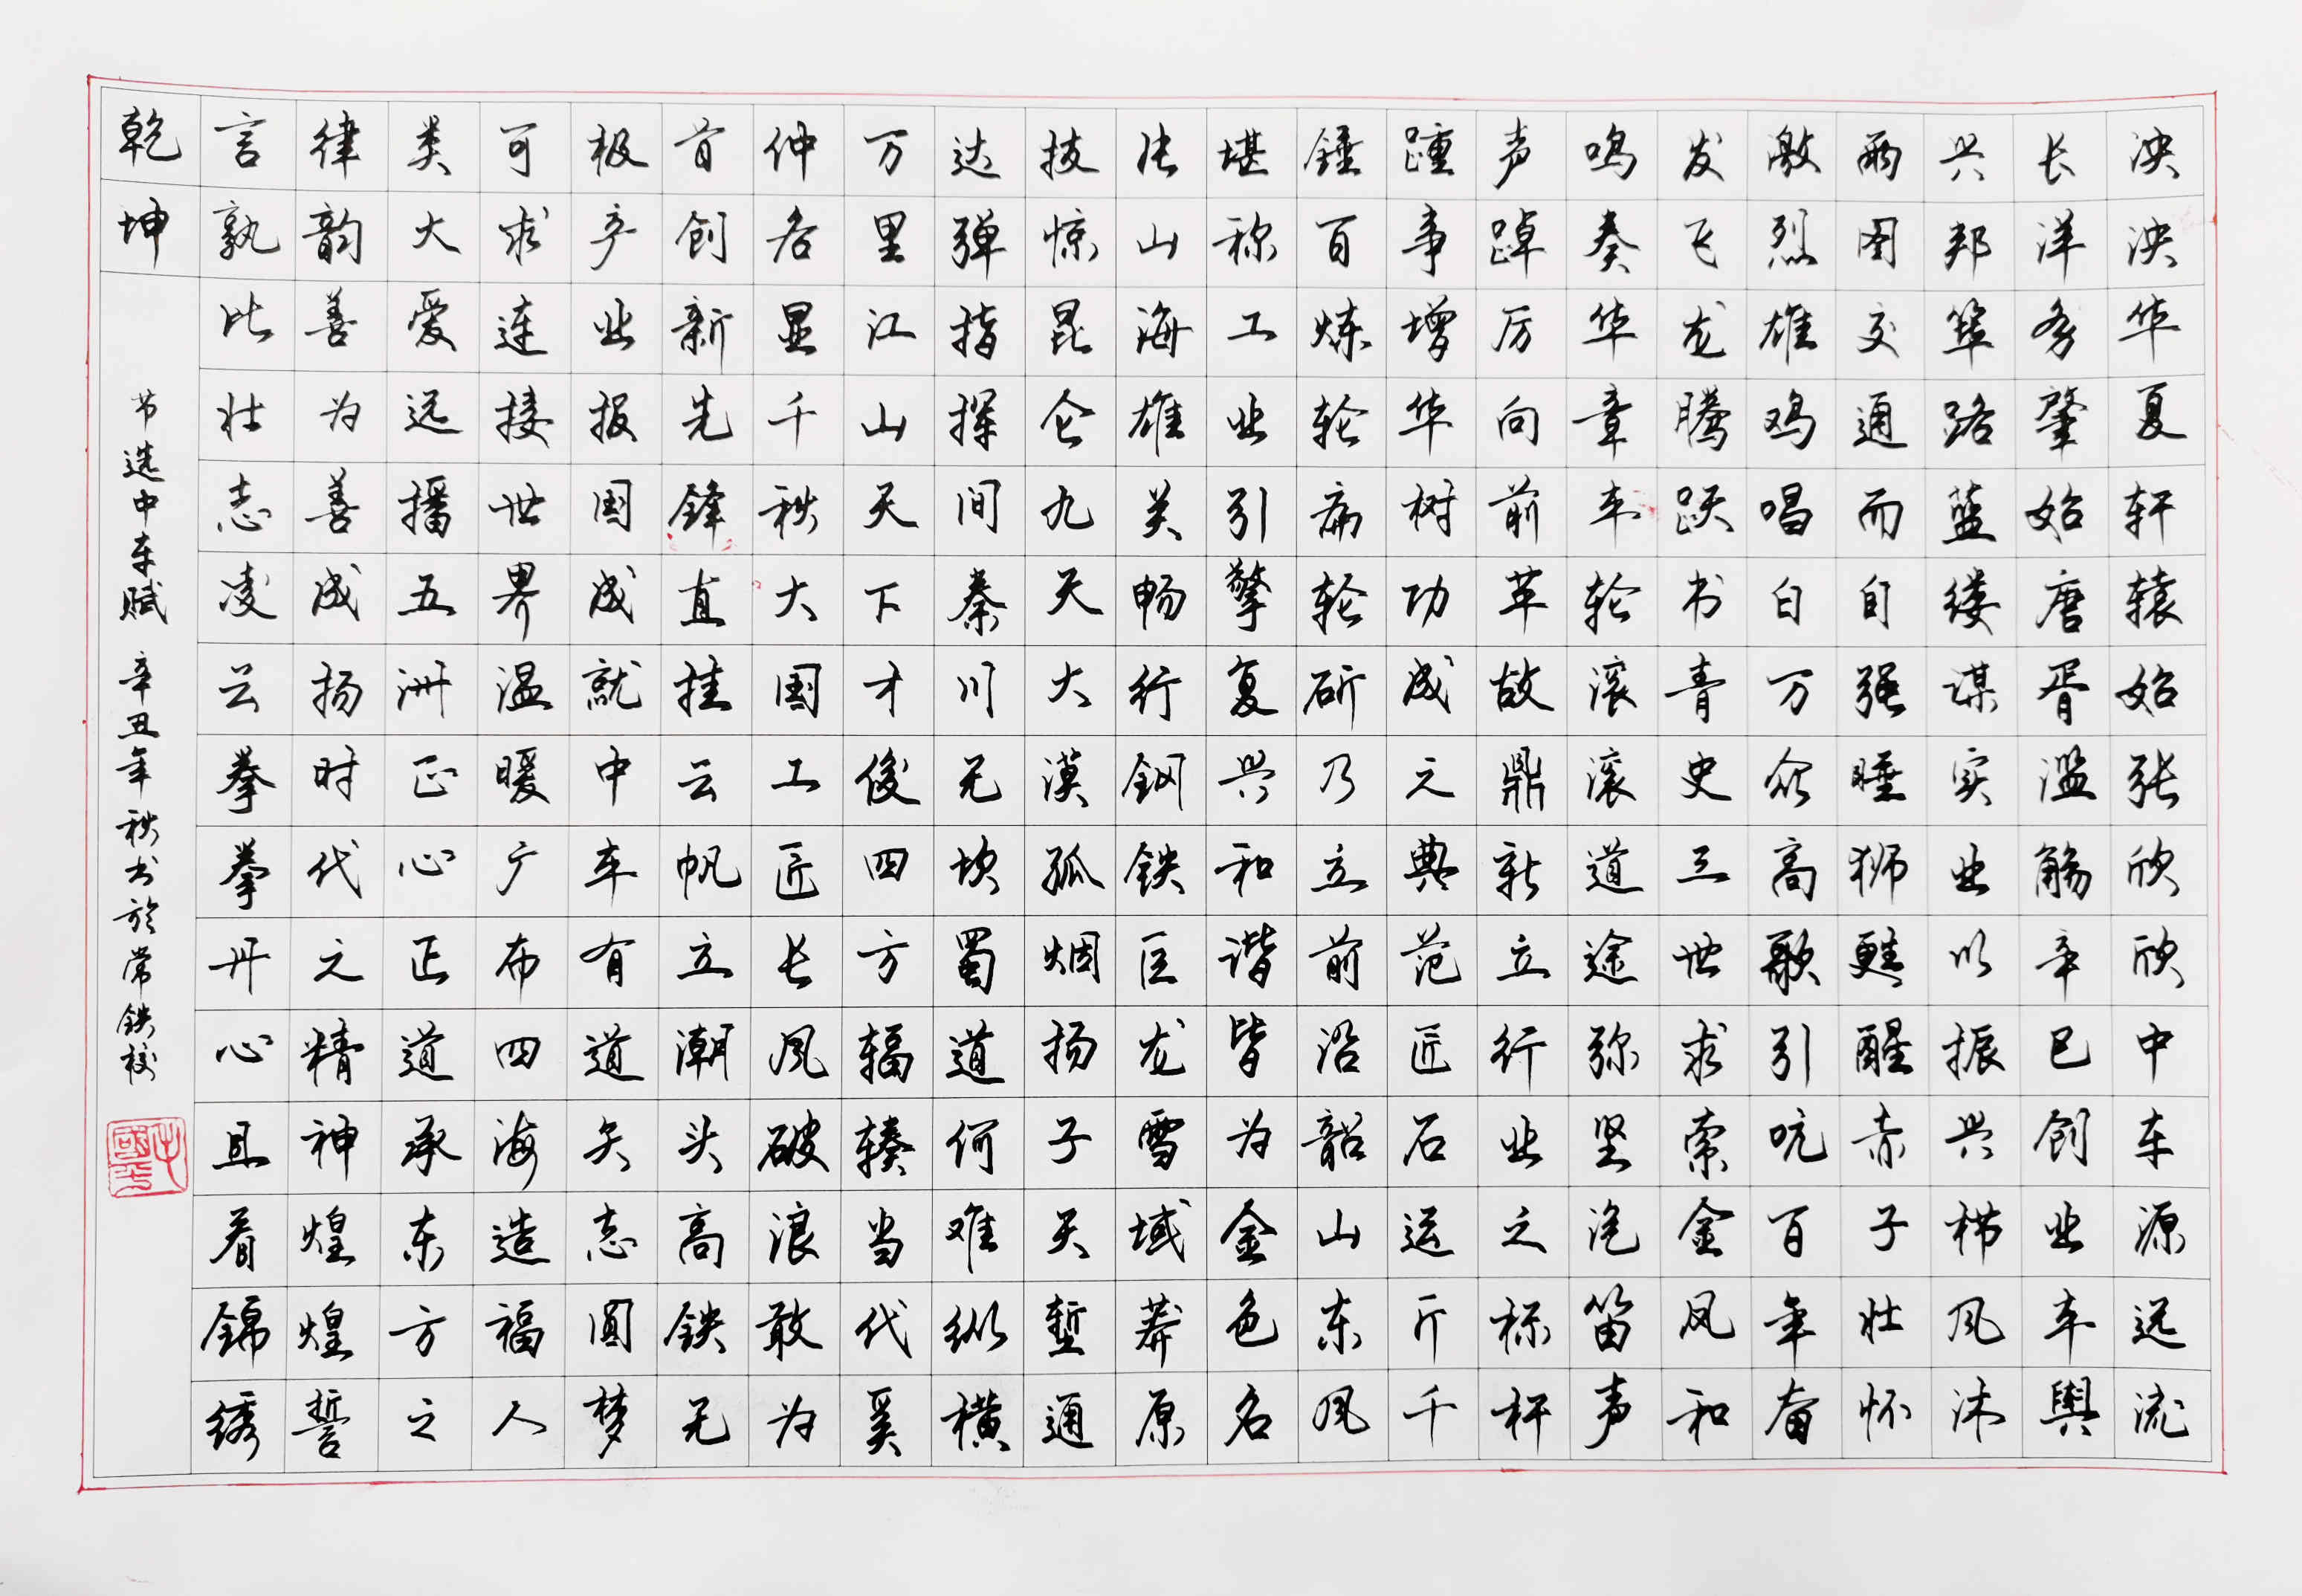 泱泱华夏轩辕始张欣欣中车源远流
长洋务肇始唐胥滥觞辛巳创业车舆
兴邦筚路蓝缕谋实业以振兴栉风沐
雨图交通而自强睡狮甦醒赤子壮怀
激烈雄鸡唱白万众高歌引吭百年奋
发飞龙腾跃书青史三世求索金凤和
鸣奏华章车轮滚滚道途弥坚汽笛声
声踔厉向前革故鼎新立行业之标杆
踵事增华树功成之典范匠石运斤千
锤百炼轮扁轮斫乃立前沿韶山东风
堪称工业引擎复兴和谐皆为金色名
片山海雄关畅行钢铁巨龙雪域莽原
技惊昆仑九天大漠孤烟扬子天堑通
达弹指探间秦川无坎蜀道何难纵横
万里江山天下才俊四方辐辏当代奚
仲名显千秋大国工匠长风破浪敢为
首创新先锋直挂云帆立潮头高铁无
极产业报国成就中车有道矢志圆梦
可求连接世界温暖广布四海造福人
类大爱远播五洲正心正道承东方之
律韵善为善成扬时代之精神煌煌誓
言孰比壮志凌云拳拳丹心且看锦绣
乾坤
节选中车赋 辛丑年秋书於常铁校